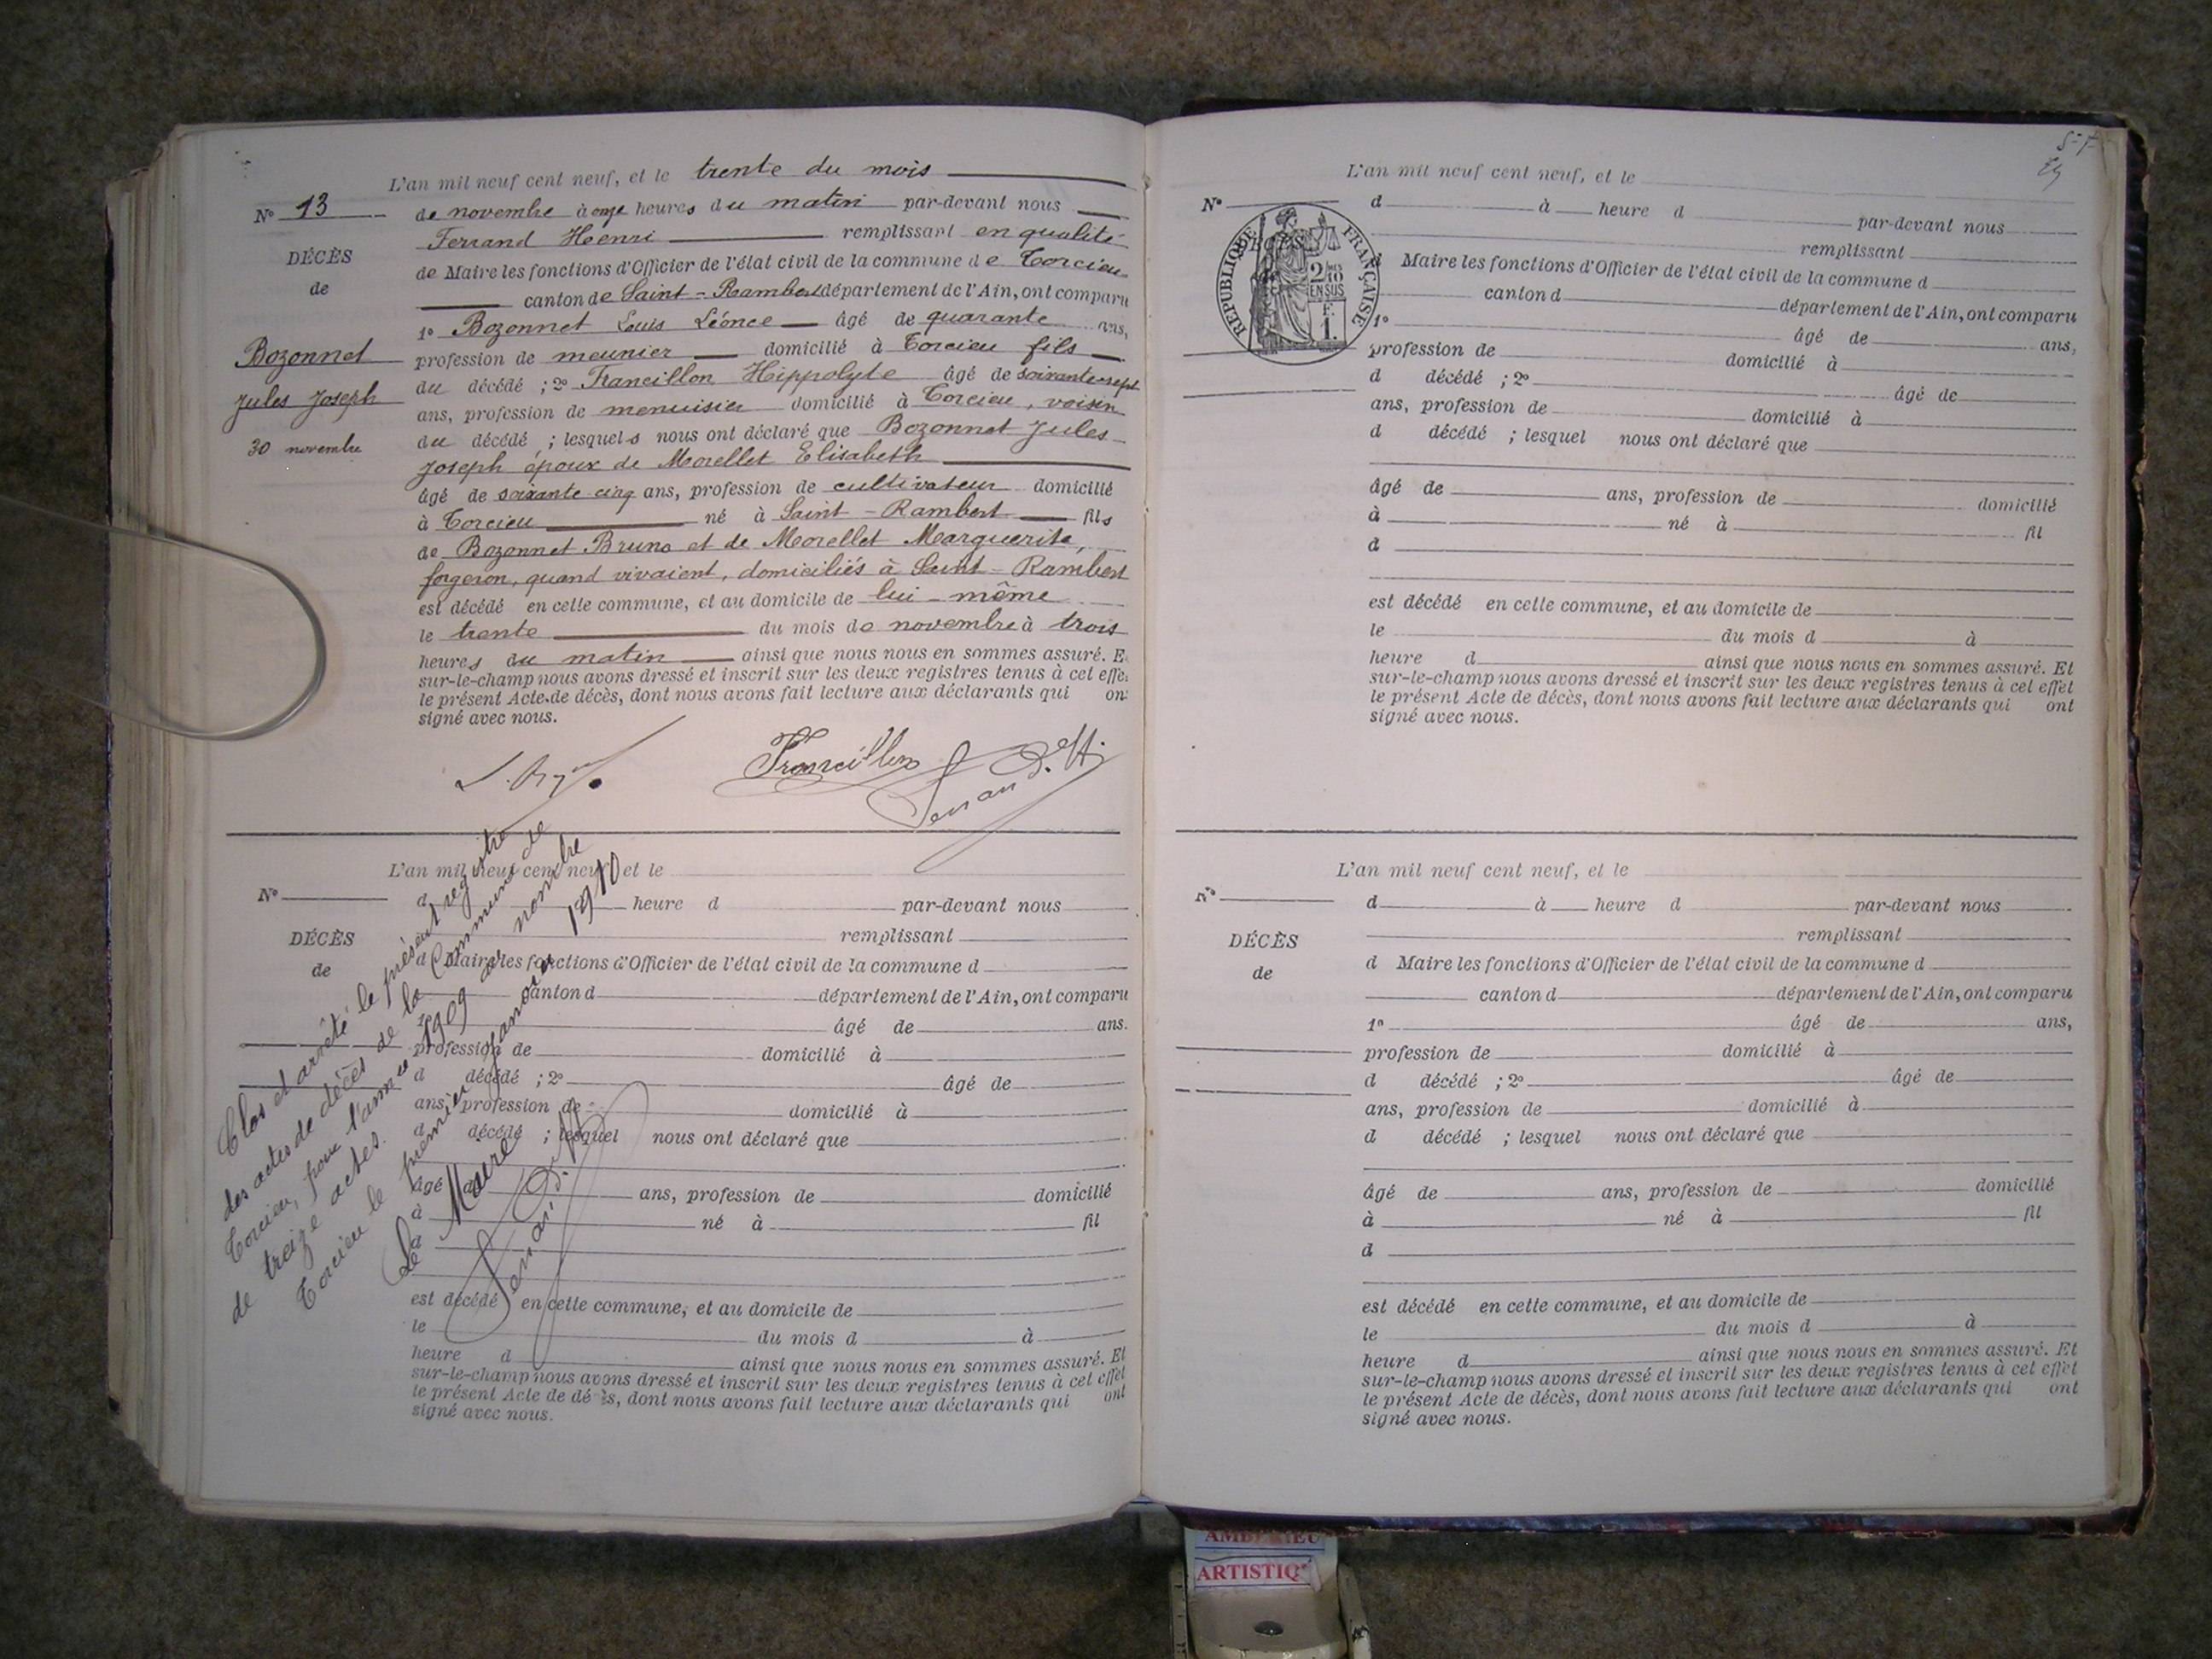 L'an mil neuf cent neuf, et le trente du mois
N° 13
de novembre à onze heures du matin par-devant nous
Ferrand Henri remplissant en qualité
DÉCÈS
de Maire les fonctions d'Officier de l'état civil de la commune de Torcieu
de
canton de Saint-Rambert département de l'Ain, ont comparu
1° Bozonnet Louis Léonce âgé de quarante ans,
Bozonnet
profession de meunier domicilié à Torcieu fils
du décédé ; 2° Francillon Hippolyte âgé de soixante-sept
Jules Joseph
ans, profession de menuisier domicilié à Torcieu, voisin
30 novembre
du décédé ; lesquels nous ont déclaré que Bozonnet Jules
Joseph époux de Morellet Elisabeth
âgé de soixante-cinq ans, profession de cultivateur domicilié
à Torcieu né à Saint-Rambert fils
de Bozonnet Bruno et de Morellet Marguerite,
forgeron, quand vivaient, domiciliés à Saint-Rambert
est décédé en cette commune, et au domicile de lui-même
le trente du mois de novembre à trois
heures du matin ainsi que nous nous en sommes assuré. E
sur-le-champ nous avons dressé et inscrit sur les deux registres tenus à cet effe
le présent Acte de décès, dont nous avons fait lecture aux déclarants qui on
signé avec nous.
Francillon
Ferrand H.
L'an mil neuf cent neuf, et le
N°
d heure d par-devant nous
DÉCÈS
remplissant
de
d Maire les fonctions d'Officier de l'état civil de la commune d
canton d département de l'Ain, ont comparu
1° âgé de ans.
profession de domicilié à
d décédé ; 2° âgé de
ans, profession de domicilié à
d décédé ; lesquel nous ont déclaré que
âgé de ans, profession de domicilié
à né à fil
d
est décédé en cette commune, et au domicile de
le du mois d à
heure d ainsi que nous nous en sommes assuré. Et
sur-le-champ nous avons dressé et inscrit sur les deux registres tenus à cet effet
le présent Acte de décès, dont nous avons fait lecture aux déclarants qui ont
signé avec nous.
Clos et arrêté le présent registre
des actes de décès de la Commune de
Torcieu, pour l'année 1909 au nombre
de treize actes.
Torcieu le premier janvier 1910
Le Maire
Ferrand H.
L'an mil neuf cent neuf, et le
N°
d à heure d par-devant nous
remplissant
RÉPUBLIQUE FRANÇAISE
2/10
EN SUS
F.
1
d Maire les fonctions d'Officier de l'état civil de la commune d
canton d département de l'Ain, ont comparu
1° âgé de ans,
profession de domicilié à
d décédé ; 2° âgé de
ans, profession de domicilié à
d décédé ; lesquel nous ont déclaré que
âgé de ans, profession de domicilié
à né à fil
d
est décédé en cette commune, et au domicile de
le du mois d à
heure d ainsi que nous nous en sommes assuré. Et
sur-le-champ nous avons dressé et inscrit sur les deux registres tenus à cet effet
le présent Acte de décès, dont nous avons fait lecture aux déclarants qui ont
signé avec nous.
L'an mil neuf cent neuf, et le
N°
d à heure d par-devant nous
DÉCÈS
remplissant
de
d Maire les fonctions d'Officier de l'état civil de la commune d
canton d département de l'Ain, ont comparu
1° âgé de ans,
profession de domicilié à
d décédé ; 2° âgé de
ans, profession de domicilié à
d décédé ; lesquel nous ont déclaré que
âgé de ans, profession de domicilié
à né à fil
d
est décédé en cette commune, et au domicile de
le du mois d à
heure d ainsi que nous nous en sommes assuré. Et
sur-le-champ nous avons dressé et inscrit sur les deux registres tenus à cet effet
le présent Acte de décès, dont nous avons fait lecture aux déclarants qui ont
signé avec nous.
ARTISTIQ